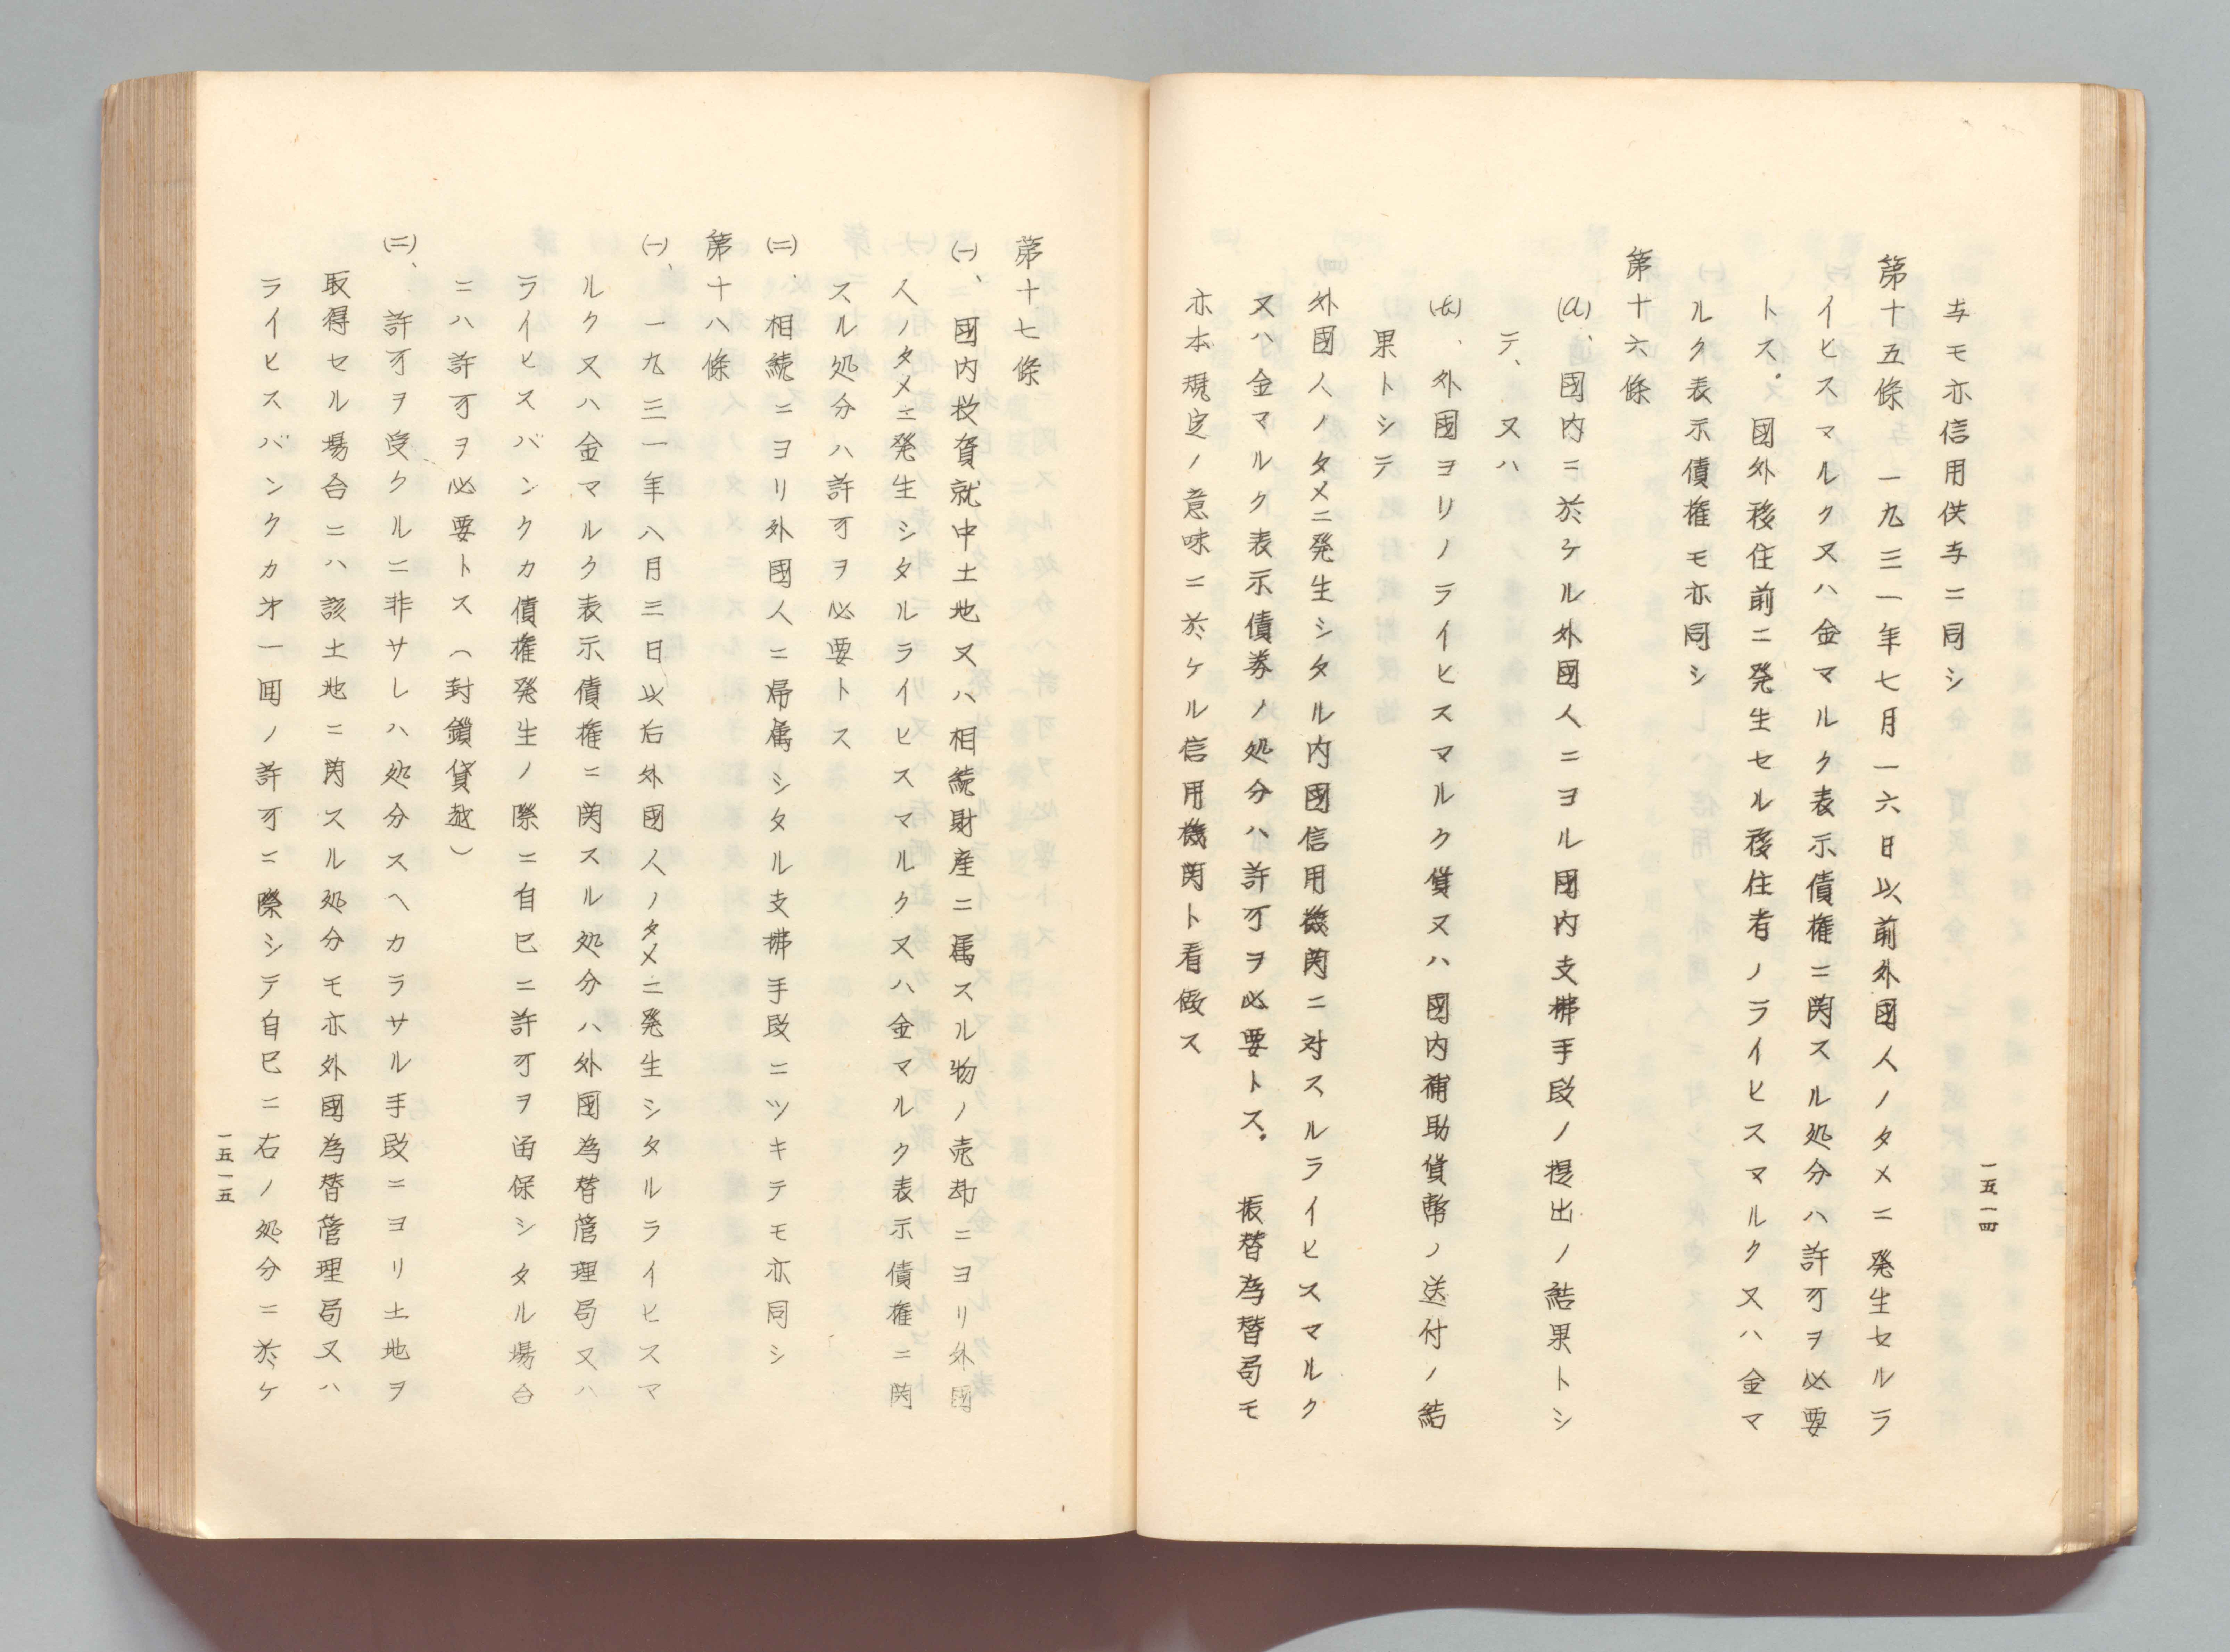 与モ亦信用供与ニ同シ
第十五條　一九三一年七月一六日以前外國人ノタメニ発生セルラ
イヒスマルク又ハ金マルク表示債権ニ関スル処分ハ許可ヲ必要
トス。國外移住前ニ発生セル移住者ノライヒスマルク又ハ金マ
ルク表示債権モ亦同シ
第十六條
(a)、國内ニ於ケル外國人ニヨル國内支拂手段ノ提出ノ結果トシ
テ、又ハ
(b)、外國ヨリノライヒスマルク貨又ハ國内補助貨幣ノ送付ノ結
果トシテ
外國人ノタメニ発生シタル内國信用機関ニ対スルライヒスマルク
又ハ金マルク表示債券ノ処分ハ許可ヲ必要トス。振替為替局モ
亦本規定ノ意味ニ於ケル信用機関ト看做ス
一五一四
第十七條
(一)、國内投資就中土地又ハ相続財産ニ属スル物ノ売却ニヨリ外國
人ノタメニ発生シタルライヒスマルク又ハ金マルク表示債権ニ関
スル処分ハ許可ヲ必要トス
(二)、相続ニヨリ外國人ニ帰属シタル支拂手段ニツキテモ亦同シ
第十八條
(一)、一九三一年八月三日以后外國人ノタメニ発生シタルライヒスマ
ルク又ハ金マルク表示債権ニ関スル処分ハ外國為替管理局又ハ
ライヒスバンクカ債権発生ノ際ニ自巳ニ許可ヲ畄保シタル場合
ニハ許可ヲ必要トス（封鎖貸越）
(二)、許可ヲ受クルニ非サレハ処分スヘカラサル手段ニヨリ土地ヲ
取得セル場合ニハ該土地ニ関スル処分モ亦外國為替管理局又ハ
ライヒスバンクカ才一囬ノ許可ニ際シテ自巳ニ右ノ処分ニ於ケ
一五一五